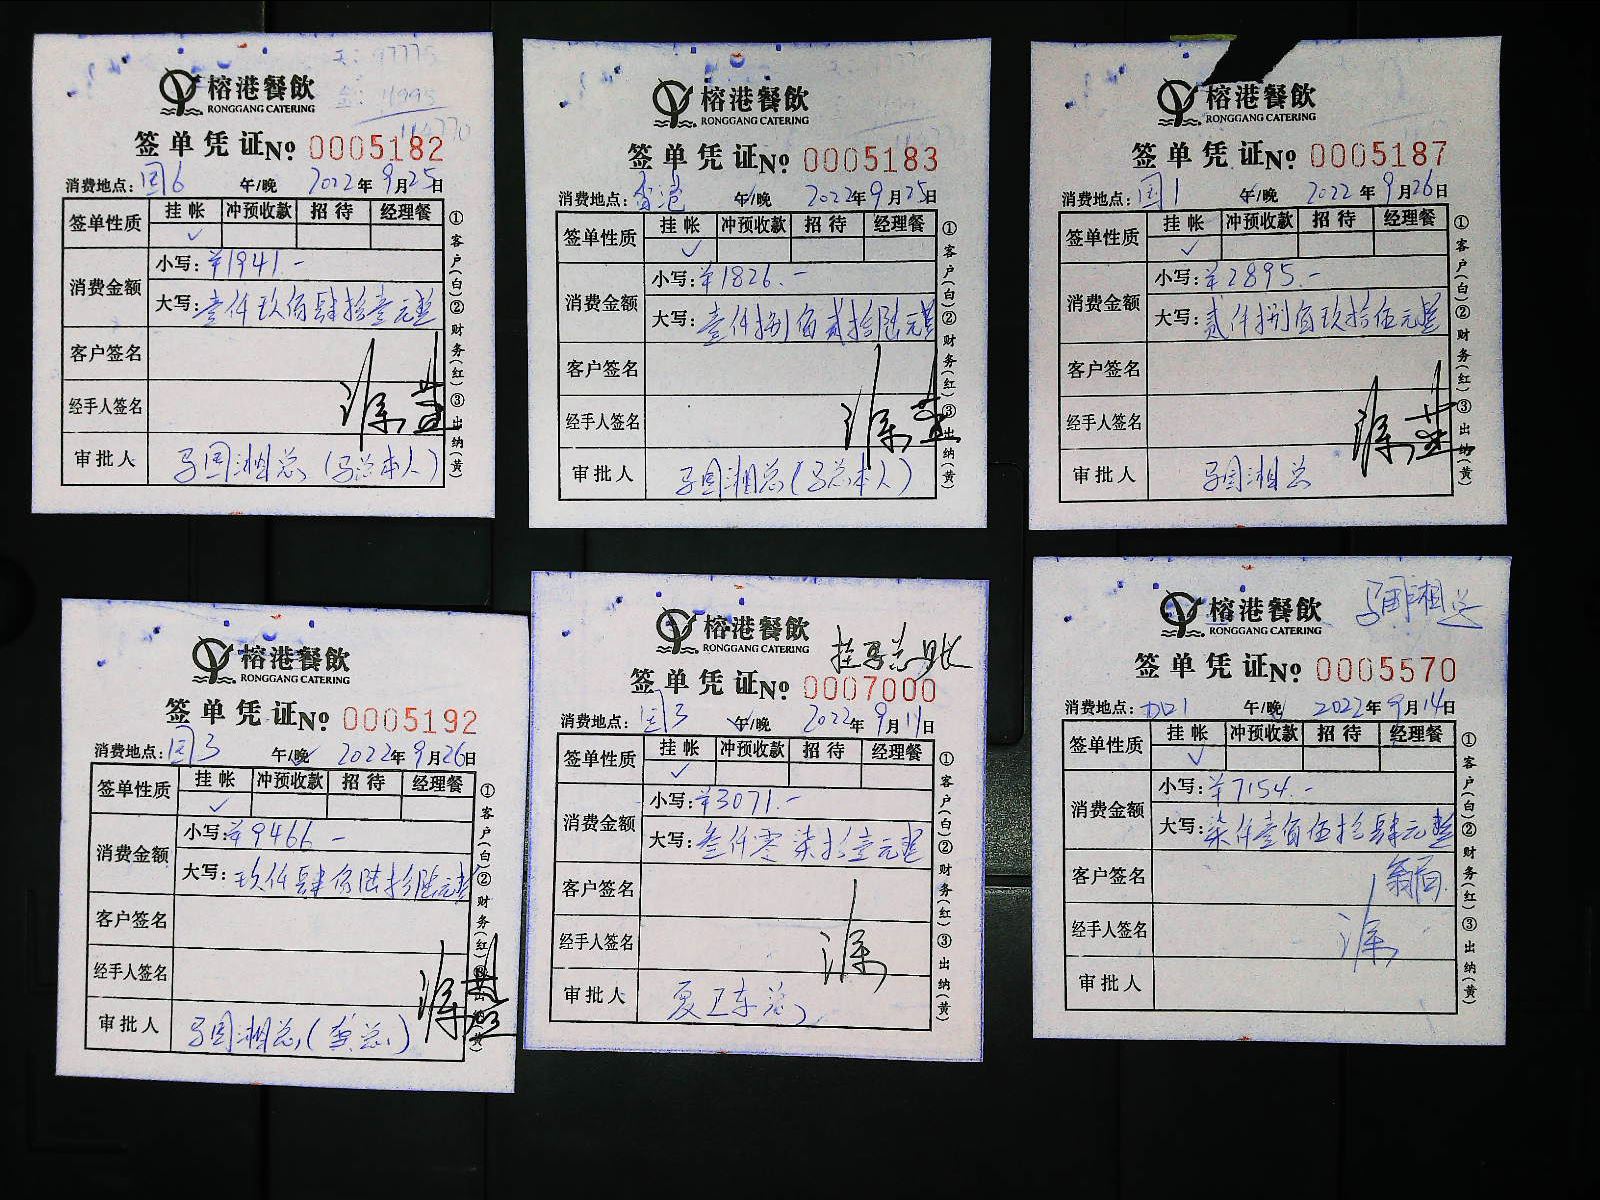 榕港餐飲
RONGGANG CATERING
签单凭证№ 0005182
消费地点：国6 午/晚 2022年9月25日
签单性质 挂帐 冲预收款 招待 经理餐
✓
消费金额 小写：¥1941.-
大写：壹仟玖佰肆拾壹元整
客户签名
经手人签名
审批人 马国湘总（马总本人）
①客户（白）②财务（红）③出纳（黄）
榕港餐飲
RONGGANG CATERING
签单凭证№ 0005183
消费地点：香港 午/晚 2022年9月25日
签单性质 挂帐 冲预收款 招待 经理餐
✓
消费金额 小写：¥1826.-
大写：壹仟捌佰贰拾陆元整
客户签名
经手人签名
审批人 马国湘总（马总本人）
①客户（白）②财务（红）③出纳（黄）
榕港餐飲
RONGGANG CATERING
签单凭证№ 0005187
消费地点：国1 午/晚 2022年9月26日
签单性质 挂帐 冲预收款 招待 经理餐
✓
消费金额 小写：¥2895.-
大写：贰仟捌佰玖拾伍元整
客户签名
经手人签名
审批人 马国湘总
①客户（白）②财务（红）③出纳（黄）
榕港餐飲
RONGGANG CATERING
签单凭证№ 0005192
消费地点：国3 午/晚 2022年9月26日
签单性质 挂帐 冲预收款 招待 经理餐
✓
消费金额 小写：¥9466.-
大写：玖仟肆佰陆拾陆元整
客户签名
经手人签名
审批人 马国湘总
①客户（白）②财务（红）③出纳（黄）
榕港餐飲
RONGGANG CATERING
挂马总账
签单凭证№ 0007000
消费地点：国3 午/晚 2022年9月11日
签单性质 挂帐 冲预收款 招待 经理餐
✓
消费金额 小写：¥3071.-
大写：叁仟零柒拾壹元整
客户签名
经手人签名 涂
审批人 夏卫东总
①客户（白）②财务（红）③出纳（黄）
马国湘总
榕港餐飲
RONGGANG CATERING
签单凭证№ 0005570
消费地点： 午/晚 2022年9月14日
签单性质 挂帐 冲预收款 招待 经理餐
✓
消费金额 小写：¥7154.-
大写：柒仟壹佰伍拾肆元整
客户签名
经手人签名 涂
审批人
①客户（白）②财务（红）③出纳（黄）